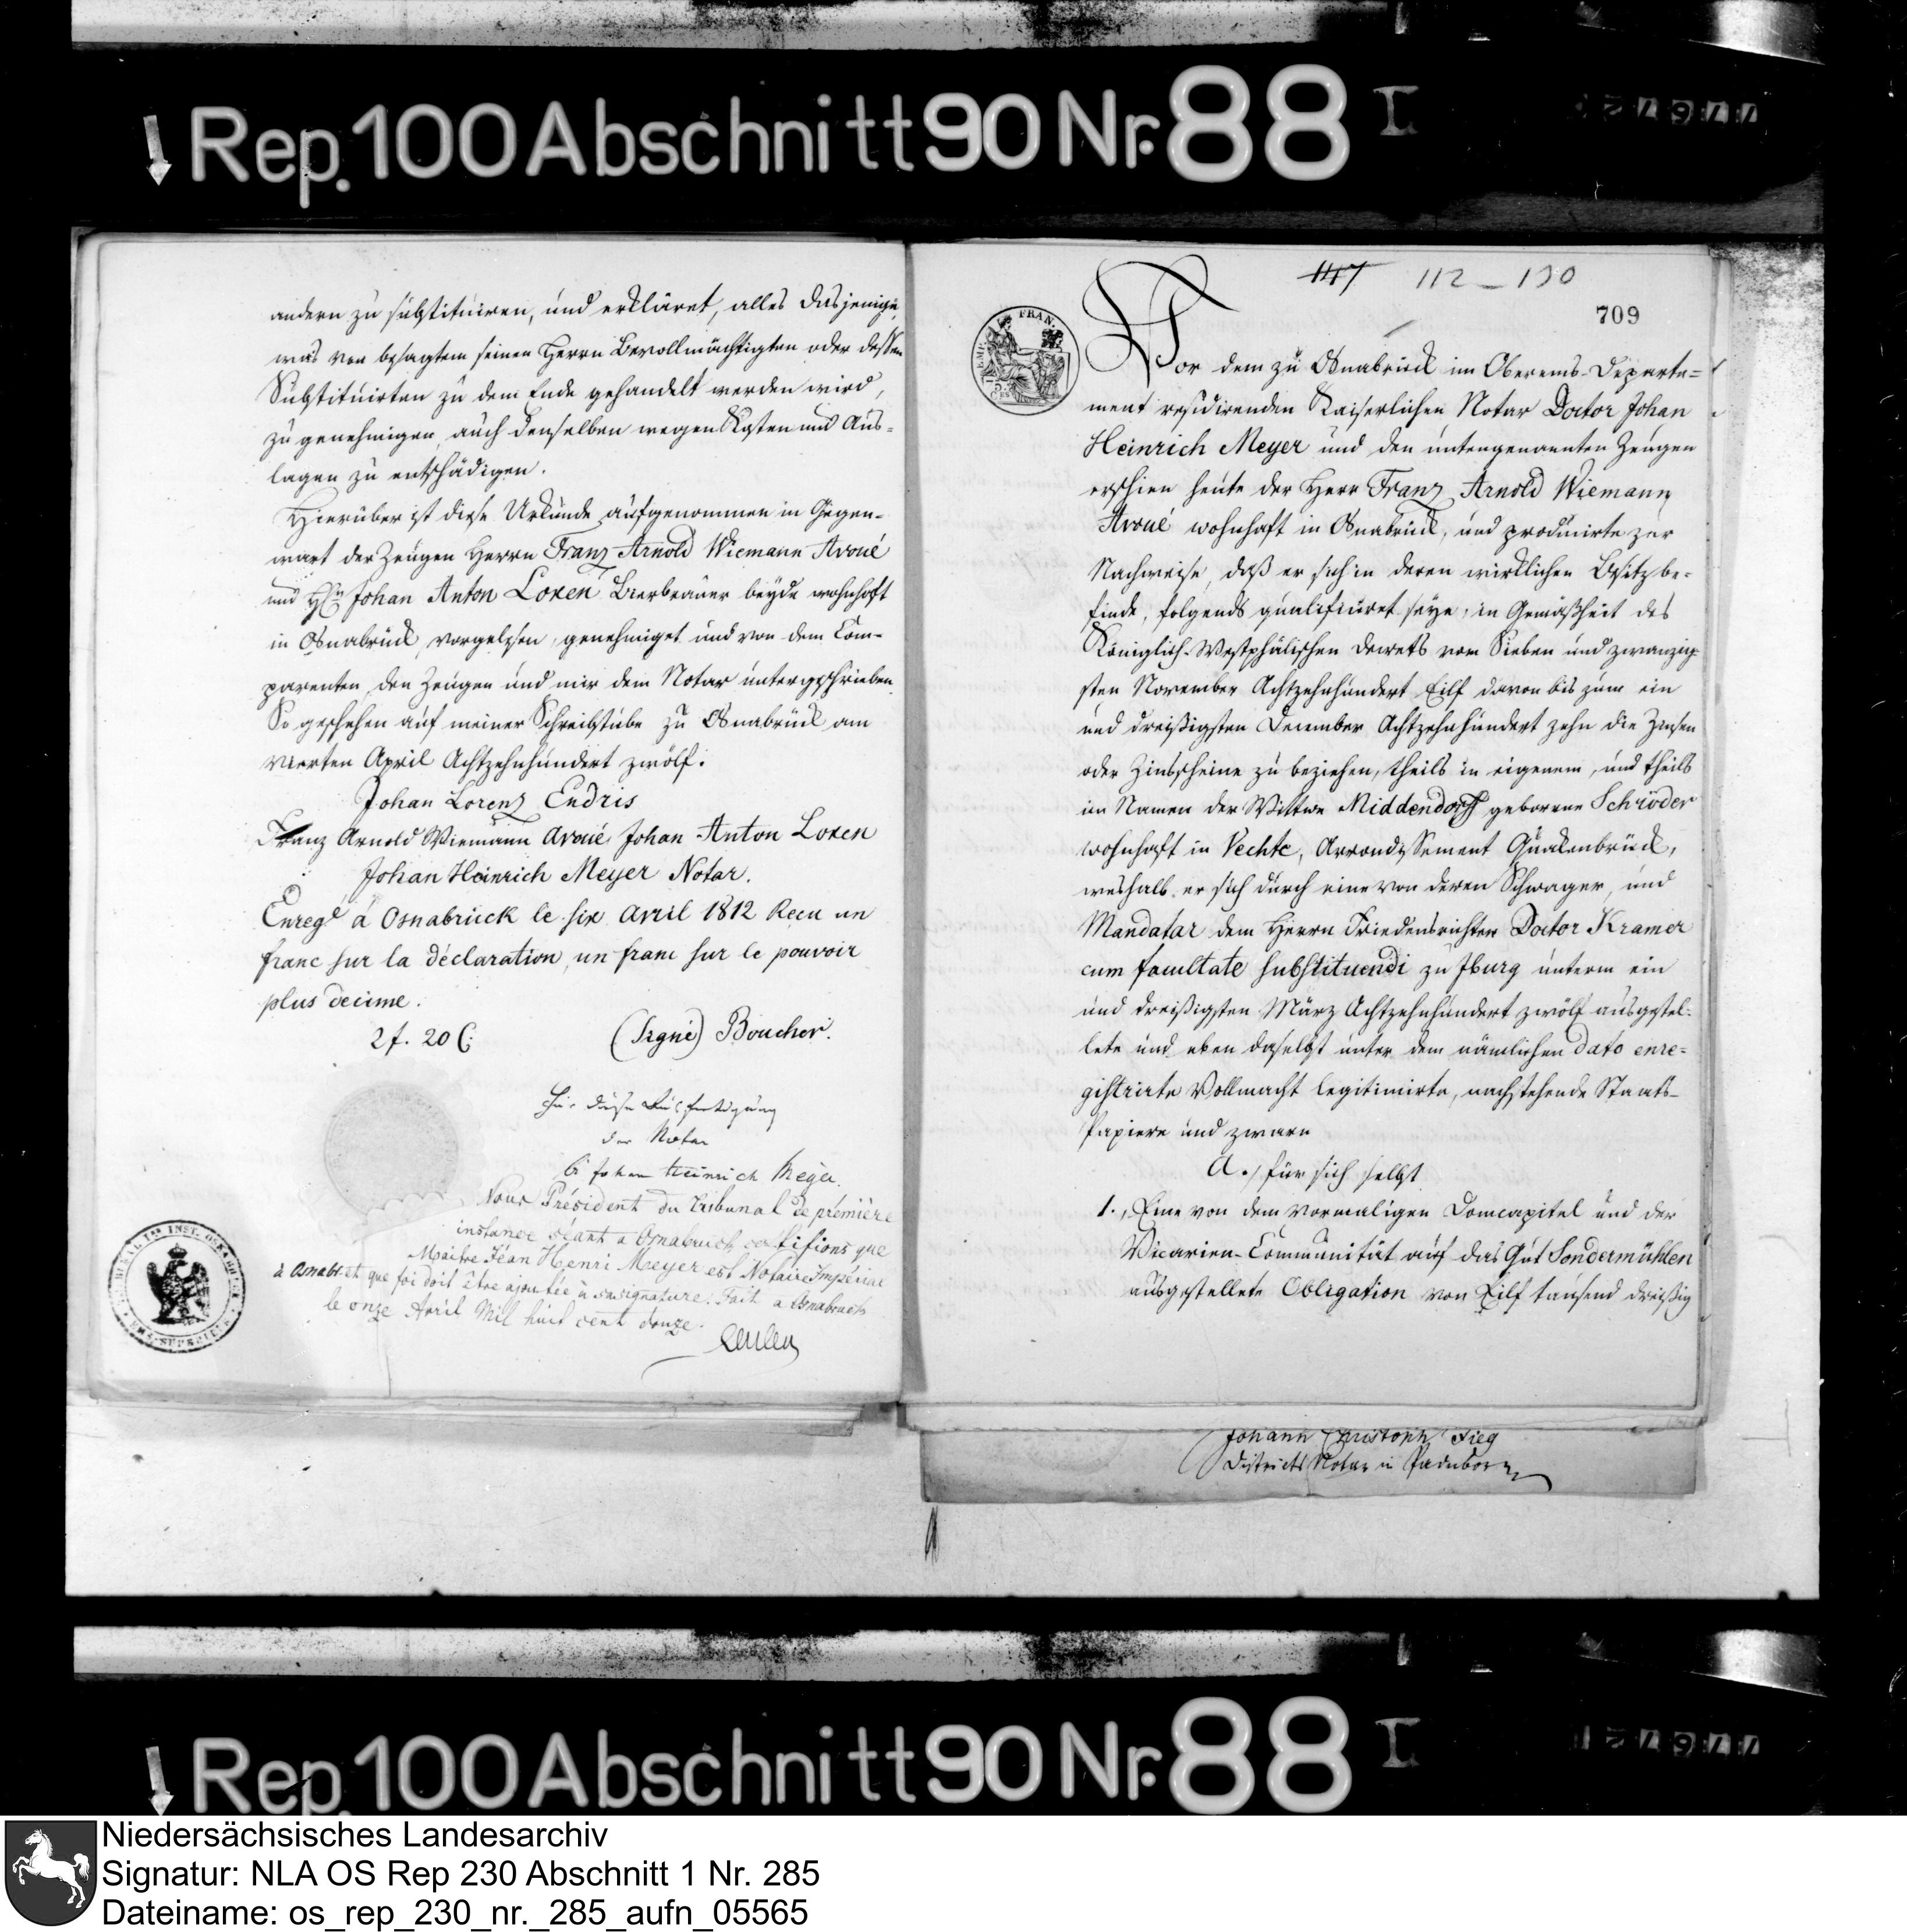 Rep. 100 Abschnitt 90 Nr. 88 I
andern zu substituiren, und erkläret, alles dasjenige,
was von besagtem seinen Herrn Bevollmächtigten oder dessen
Substituirten zu dem Ende gehandelt werden wird,
zu genehmigen auch denselben wegen Kosten und Aus-
lagen zu entschädigen.
Hierüber ist diese Urkunde aufgenommen in Gegen-
wart der Zeugen Herrn Franz Arnold Wiemann Avoué
und Hrn Johan Anton Loxen Bierbrauer beyde wohnhaft
in Osnabrück, vorgelesen, genehmiget und von dem Com-
parenten, den Zeugen und mir dem Notar untergeschrieben.
So geschehen auf meiner Schreibstube zu Osnabrück am
vierten April Achtzehnhundert zwölf.
Johan Lorenz Endris
Franz Arnold Wiemann Avoué, Johan Anton Loxen
Johan Heinrich Meyer Notar.
Enregé à Osnabrück le six Avril 1812 Recu un
franc sur la déclaration, un franc sur le pouvoir
plus decime.
2f. 20 C. (Signé) Boucher.
Für diese Ausfertigung
der Notar
Johan Heinrich Meyer.
Nous Président du Tribunal de première
instance séant a Osnabruck certifions que
Maitre Jéan Henri Meyer est Notaire Impérial
à Osnabr et que foi doit être ajoutée à sa signature. Fait a Osnabruck
le onze Avril Mil huit cent douze.
147 112 – 130
709
EMP. FRAN.
Vor dem zu Osnabrück im Oberems-Departe-
ment residirenden Kaiserlichen Notar Doctor Johan
Heinrich Meyer und den untengenannten Zeugen
erschien heute der Herr Franz Arnold Wiemann
Avoué wohnhaft in Osnabrück, und producirte zur
Nachweise, daß er sich in deren wirklichen Besitz be-
finde, folgends qualificiret seye, in Gemäßheit des
Königlich-Westphälischen Decrets vom Sieben und zwanzig-
sten November Achtzehnhundert Eilf davon bis zum ein
und dreißigsten December Achtzehnhundert zehn die Zinsen
oder Zinsscheine zu beziehen, theils in eigenem, und theils
im Namen der Wittwe Middendorff geborene Schröder
wohnhaft in Vechte, Arrondissement Quakenbrück,
weshalb er sich durch eine von deren Schwager, und
Mandatar dem Herrn Friedensrichter Doctor Kramer
cum facultate substituendi zu Iburg unterm ein
und dreißigsten März Achtzehnhundert zwölf ausgestel-
lete und eben daselbst unter dem nämlichen dato enre-
gistrirte Vollmacht legitimirte, nachstehende Staats-
Papiere und zwarn
A., für sich selbst
1., Eine von dem vormaligen Domcapitel und der
Vicarien-Communität auf das Gut Sondermühlen
ausgestellete Obligation von Eilf tausend dreißig
Johann Christoph Fieg
Districts Notar in Paderborn
Rep. 100 Abschnitt 90 Nr. 88 I
Niedersächsisches Landesarchiv
Signatur: NLA OS Rep 230 Abschnitt 1 Nr. 285
Dateiname: os_rep_230_nr._285_aufn_05565